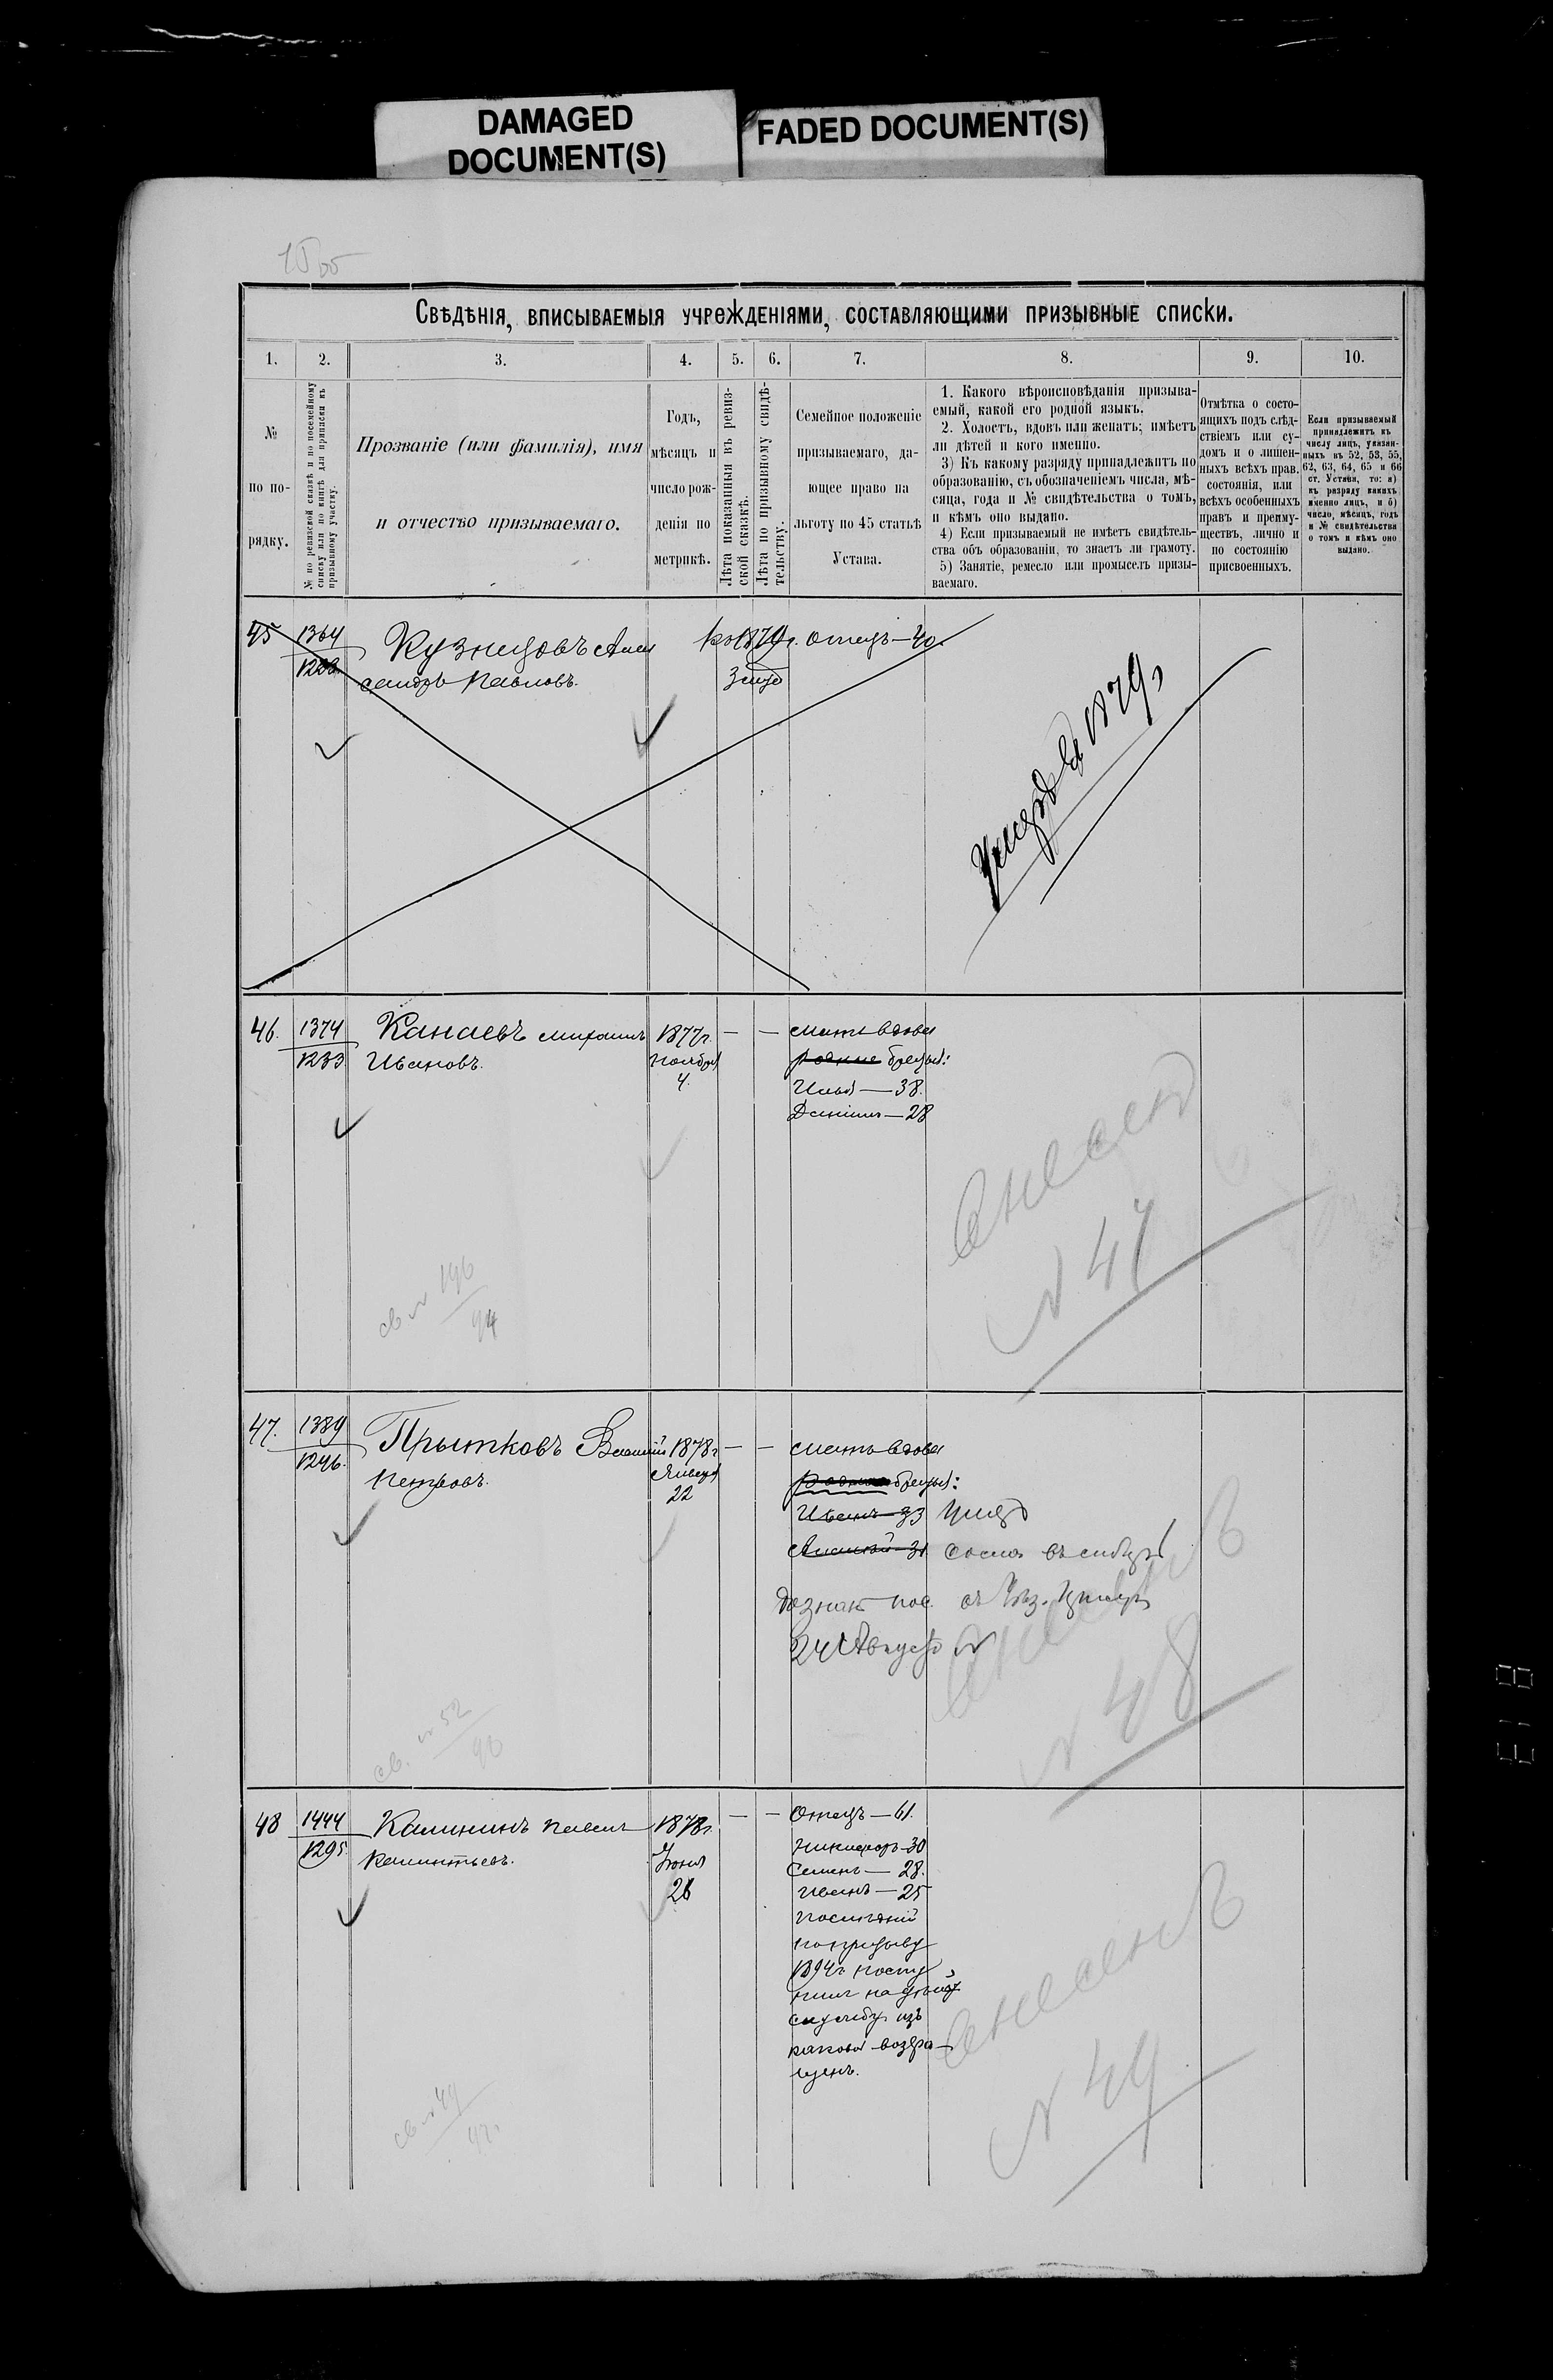 DAMAGED
DOCUMENT(S)
FADED DOCUMENT(S)
Свѣдѣнія, вписываемыя учрежденіями, составляющими призывные списки.
1. 2. 3. 4. 5. 6. 7. 8. 9. 10.
№
по по-
рядку.
№ по ревизской сказкѣ и по посемейному
списку или по книгѣ для приписки къ
призывному участку.
Прозваніе (или фамилія), имя
и отчество призываемаго.
Годъ,
мѣсяцъ и
число рож-
денія по
метрикѣ.
Лѣта показанныя въ ревиз-
ской сказкѣ.
Лѣта по призывному свидѣ-
тельству.
Семейное положеніе
призываемаго, да-
ющее право на
льготу по 45 статьѣ
Устава.
1. Какого вѣроисповѣданія призыва-
емый, какой его родной языкъ.
2. Холостъ, вдовъ или женатъ; имѣетъ
ли дѣтей и кого именно.
3) Къ какому разряду принадлежитъ по
образованію, съ обозначеніемъ числа, мѣ-
сяца, года и № свидѣтельства о томъ,
и кѣмъ оно выдано.
4) Если призываемый не имѣетъ свидѣтель-
ства объ образованіи, то знаетъ ли грамоту.
5) Занятіе, ремесло или промыселъ призы-
ваемаго.
Отмѣтка о состо-
ящихъ подъ слѣд-
ствіемъ или су-
домъ и о лишен-
ныхъ всѣхъ прав.
состоянія, или
всѣхъ особенныхъ
правъ и преиму-
ществъ, лично и
по состоянію
присвоенныхъ.
Если призываемый
принадлежитъ къ
числу лицъ, указан-
ныхъ въ 52, 53, 55,
62, 63, 64, 65 и 66
ст. Устава, то: а)
къ разряду какихъ
именно лицъ, и б)
число, мѣсяцъ, годъ
и № свидѣтельства
о томъ и кѣмъ оно
выдано.
45 1364 Кузнецовъ Алек
сандръ Павловъ.
отецъ—40.
Умеръ 1879
46. 1374 Канаевъ Михаилъ 1877г. — — мать вдова
1233 Ивановъ. Ноября родные братья:
4. Илья—38.
Данiилъ—28
внесенъ
№ 47
св № 196
94
47. 1389 Прытковъ Василiй 1878г — — мать вдова
1246. Петровъ. Января родные братья:
22 Иванъ—33 умеръ
Алексѣй—31 сослан въ сибирь
24 Августа №
внесенъ
№ 48
св. № 52
48 1444 Калининъ Павелъ 1878г. — — Отецъ—61.
1295 Калинтьевъ. Июня Никифоръ—30
26 Семенъ—28.
Иванъ—25
Послѣднiй
по призыву
1894г. посту
пилъ на
службу изъ
каковой возвра-
щенъ.
внесенъ
№ 49
св № 49